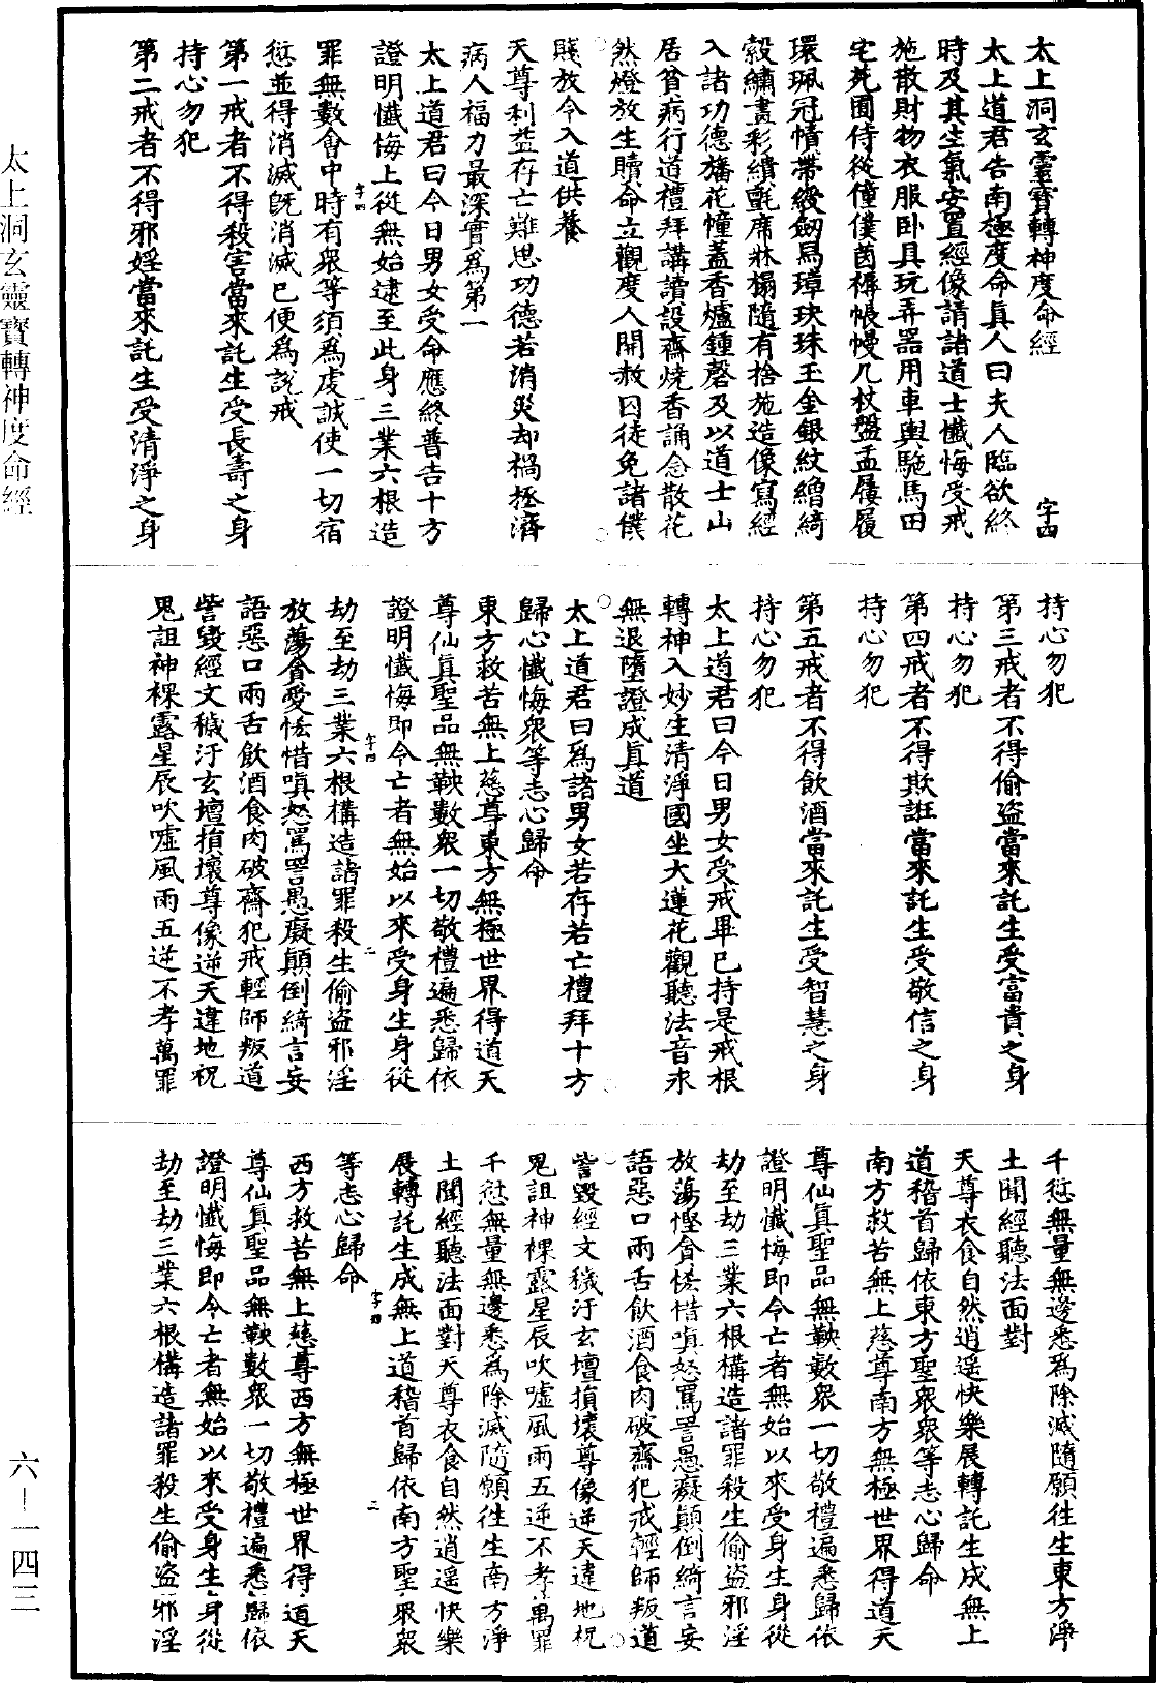 太上洞玄靈寶轉神度命經 字四
太上道君告南極度命眞人曰夫人臨欲終
時及其生氣安置經像請諸道士懺悔受戒
施散財物衣服卧具玩弄器用車輿駞馬田
宅苑園侍從僮僕茵褥帳幔几杖盤盂屨履
環珮冠幘帶綬劒舄璋玦珠玉金銀紋繒綺
縠繡畫彩繢氈席牀榻隨有捨施造像寫經
入諸功德旛花幢蓋香爐鍾磬及以道士山
居貧病行道禮拜講讀設齋燒香誦念散花
然燈放生贖命立觀度人開赦囚徒免諸僕
賤放令入道供養
天尊利益存亡難思功德若消災却禍拯濟
病人福力最深實爲第一
太上道君曰今日男女受命應終普告十方
證明懺悔上從無始逮至此身三業六根造
罪無數會中時有衆等須爲虔誠使一切宿
愆並得消滅旣消滅已便爲說戒
第一戒者不得殺害當來託生受長壽之身
持心勿犯
第二戒者不得邪婬當來託生受清淨之身
持心勿犯
第三戒者不得偷盜當來託生受富貴之身
持心勿犯
第四戒者不得欺誑當來託生受敬信之身
持心勿犯
第五戒者不得飲酒當來託生受智慧之身
持心勿犯
太上道君曰今日男女受戒畢已持是戒根
轉神入妙生清淨國坐大蓮花觀聽法音永
無退墮證成眞道
太上道君曰爲諸男女若存若亡禮拜十方
歸心懺悔衆等志心歸命
東方救苦無上慈尊東方無極世界得道天
尊仙眞聖品無鞅數衆一切敬禮遍悉歸依
證明懺悔即今亡者無始以來受身生身從
劫至劫三業六根構造諸罪殺生偷盜邪淫
放蕩貪愛悋惜嗔怒罵詈愚癡顚倒綺言妄
語惡口兩舌飲酒食肉破齋犯戒輕師叛道
訾毀經文穢汙玄壇損壞尊像逆天違地祝
鬼詛神裸露星辰吹噓風雨五逆不孝萬罪
千愆無量無邊悉爲除滅隨願往生東方淨
土聞經聽法面對
天尊衣食自然逍遥快樂展轉託生成無上
道稽首歸依東方聖衆衆等志心歸命
南方救苦無上慈尊南方無極世界得道天
尊仙眞聖品無鞅數衆一切敬禮遍悉歸依
證明懺悔即今亡者無始以來受身生身從
劫至劫三業六根構造諸罪殺生偷盜邪淫
放蕩慳貪悋惜嗔怒罵詈愚癡顚倒綺言妄
語惡口兩舌飲酒食肉破齋犯戒輕師叛道
訾毀經文穢汙玄壇損壞尊像逆天違地祝
鬼詛神裸露星辰吹噓風雨五逆不孝萬罪
千愆無量無邊悉爲除滅隨願往生南方淨
土聞經聽法面對天尊衣食自然逍遥快樂
展轉託生成無上道稽首歸依南方聖衆衆
等志心歸命
西方救苦無上慈尊西方無極世界得道天
尊仙眞聖品無鞅數衆一切敬禮遍悉歸依
證明懺悔即今亡者無始以來受身生身從
劫至劫三業六根構造諸罪殺生偷盜邪淫
太上洞玄靈寶轉神度命經
六—一四三